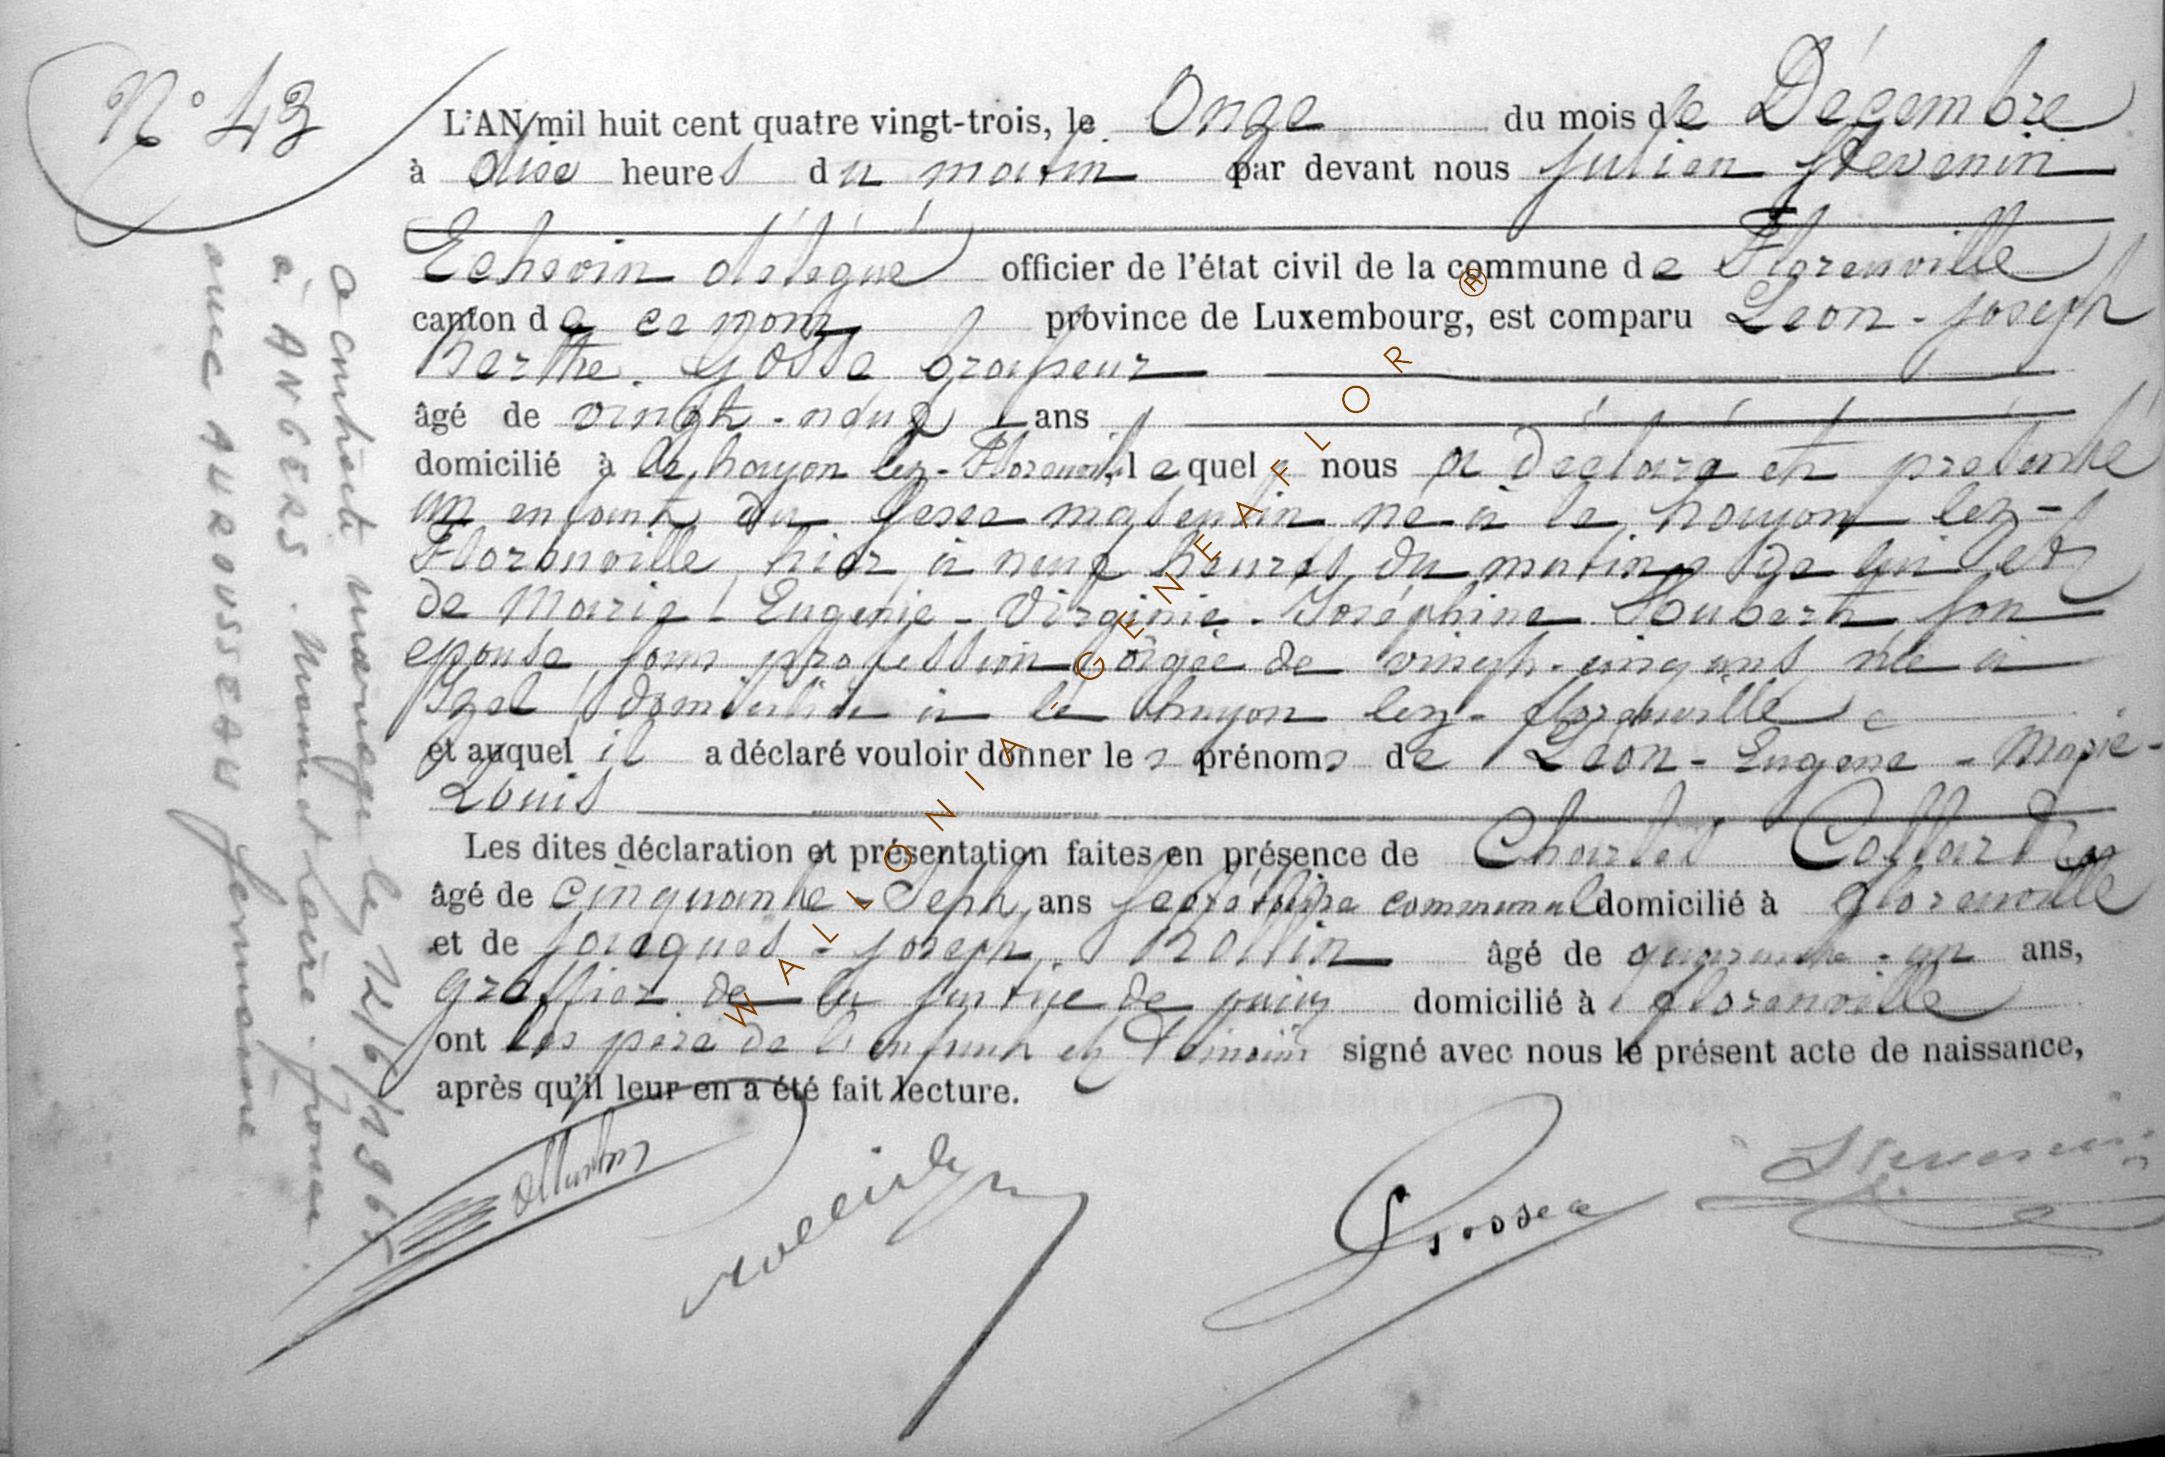 N° 43
L'AN mil huit cent quatre vingt-trois, le Onze du mois de Décembre
à dix heures du matin par devant nous Julien Stevenin
Echevin délégué officier de l'état civil de la commune de Florenville
canton de ce nom province de Luxembourg, est comparu Léon-Joseph
Berthe. Gosse brasseur
âgé de vingt-neuf ans
domicilié à lez-Florenville lequel nous a déclaré et présenté
un enfant du sexe masculin né à lez-
Florenville hier à neuf heures du matin de lui et
de Marie-Eugénie-Virginie-Joséphine Houbert son
épouse sans profession âgée de vingt-cinq ans née à
Izel domiciliée à lez-florenville
et auquel il a déclaré vouloir donner les prénoms de Léon-Eugène-Marie-
Louis
Les dites déclaration et présentation faites en présence de Charles
âgé de cinquante-sept ans secrétaire communal domicilié à florenville
et de jacques-joseph Rollin âgé de quarante-un ans,
greffier de la justice de paix domicilié à florenville
ont les père de l'enfant et témoins signé avec nous le présent acte de naissance,
après qu'il leur en a été fait lecture.
Stevenin
a contracté mariage le 21/6/1965
à ANGERS. Maine et Loire. France.
avec AUROUSSEAU Germaine
WALLONIA-GENEAFLOR ®